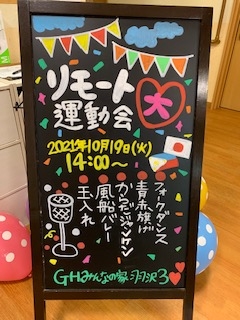 リモート
運動会
大
2021年10月19日(火)
14:00～
フォークダンス
青赤旗上げ
からだジャンケン
風船バレー
玉入れ
GHみんなの家羽沢3